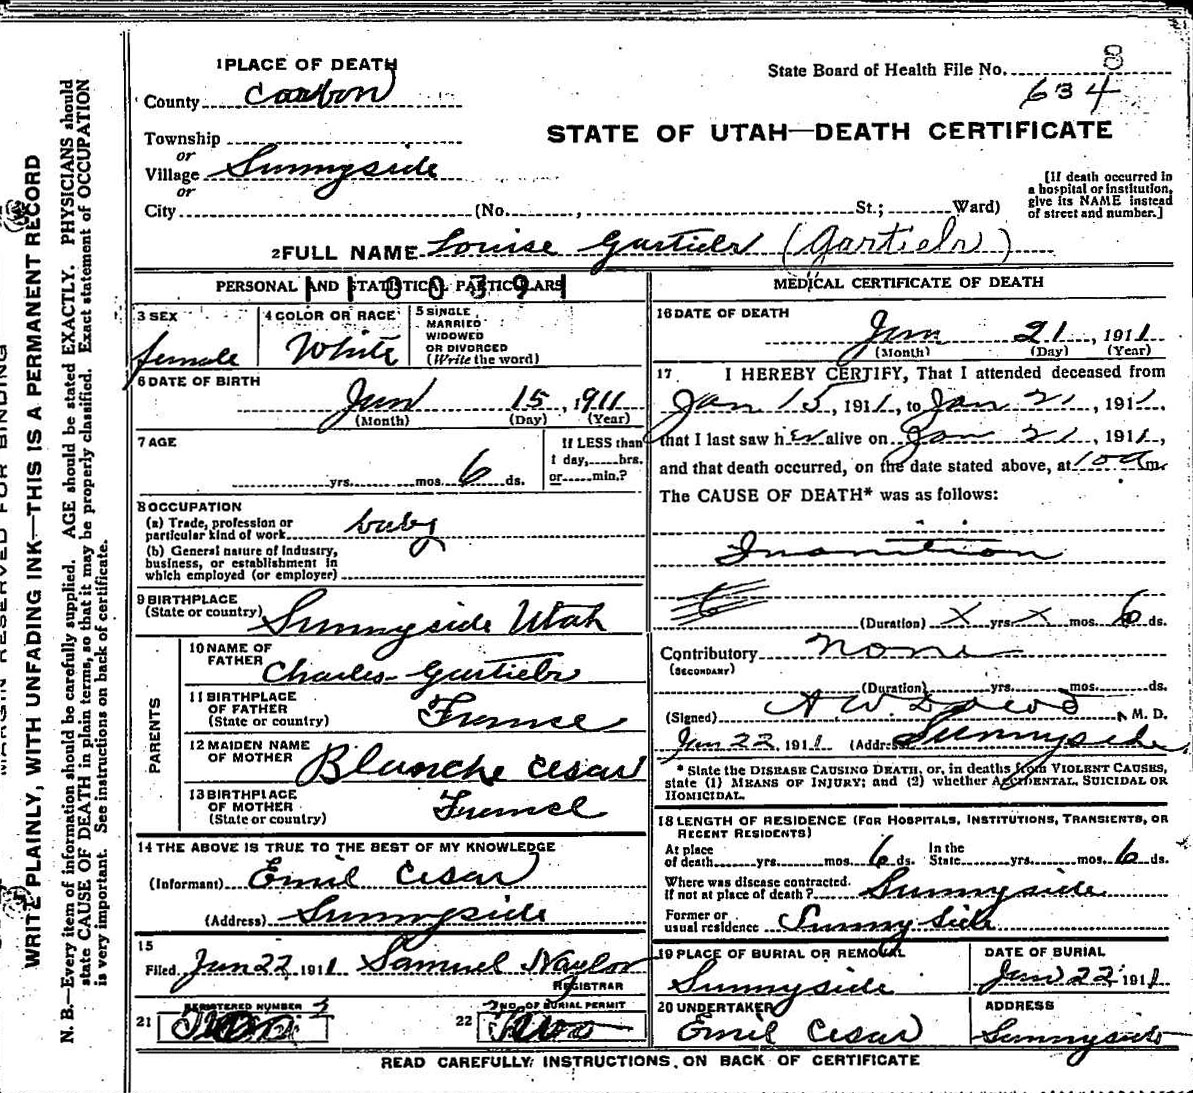 1 PLACE OF DEATH
County Carbon
Township
or
Village Sunnyside
or
City (No. , St.; Ward)
State Board of Health File No. 8
634
STATE OF UTAH—DEATH CERTIFICATE
[If death occurred in
a hospital or institution,
give its NAME instead
of street and number.]
2 FULL NAME Louise Gartieln (Gartieln)
PERSONAL AND STATISTICAL PARTICULARS
3 SEX
female
4 COLOR OR RACE
White
5 SINGLE
MARRIED
WIDOWED
OR DIVORCED
(Write the word)
6 DATE OF BIRTH
Jan 15, 1911
(Month) (Day) (Year)
7 AGE
yrs. mos. 6 ds.
If LESS than
1 day, hrs.
or min.?
8 OCCUPATION
(a) Trade, profession or
particular kind of work baby
(b) General nature of Industry,
business, or establishment in
which employed (or employer)
9 BIRTHPLACE
(State or country) Sunnyside Utah
PARENTS
10 NAME OF
FATHER Charles Gartieln
11 BIRTHPLACE
OF FATHER
(State or country) France
12 MAIDEN NAME
OF MOTHER Blanche Cesar
13 BIRTHPLACE
OF MOTHER
(State or country) France
14 THE ABOVE IS TRUE TO THE BEST OF MY KNOWLEDGE
(Informant) Emil Cesar
(Address) Sunnyside
15
Filed Jan 22 1911 Samuel Naylor
REGISTRAR
21 REGISTERED NUMBER
22 NO. OF BURIAL PERMIT
Two
MEDICAL CERTIFICATE OF DEATH
16 DATE OF DEATH
Jan 21, 1911
(Month) (Day) (Year)
17 I HEREBY CERTIFY, That I attended deceased from
Jan 15, 1911, to Jan 21, 1911,
that I last saw her alive on Jan 21, 1911,
and that death occurred, on the date stated above, at 10 a m.
The CAUSE OF DEATH* was as follows:
Inanition
(Duration) x yrs. x mos. 6 ds.
Contributory None
(SECONDARY)
(Duration) yrs. mos. ds.
(Signed) A W Dowd, M. D.
Jan 22, 1911 (Address) Sunnyside
* State the DISEASE CAUSING DEATH, or, in deaths from VIOLENT CAUSES,
state (1) MEANS OF INJURY; and (2) whether ACCIDENTAL, SUICIDAL OR
HOMICIDAL.
18 LENGTH OF RESIDENCE (FOR HOSPITALS, INSTITUTIONS, TRANSIENTS, OR
RECENT RESIDENTS)
At place In the
of death yrs. mos. 6 ds. State yrs. mos. 6 ds.
Where was disease contracted.
if not at place of death? Sunnyside
Former or
usual residence Sunny Side
19 PLACE OF BURIAL OR REMOVAL
Sunnyside
DATE OF BURIAL
Jan 22 1911
20 UNDERTAKER
Emil Cesar
ADDRESS
Sunnyside
READ CAREFULLY INSTRUCTIONS ON BACK OF CERTIFICATE
MARGIN RESERVED FOR BINDING
WRITE PLAINLY, WITH UNFADING INK—THIS IS A PERMANENT RECORD
N. B.—Every item of information should be carefully supplied. AGE should be stated EXACTLY. PHYSICIANS should
state CAUSE OF DEATH in plain terms, so that it may be properly classified. Exact statement of OCCUPATION
is very important. See instructions on back of certificate.